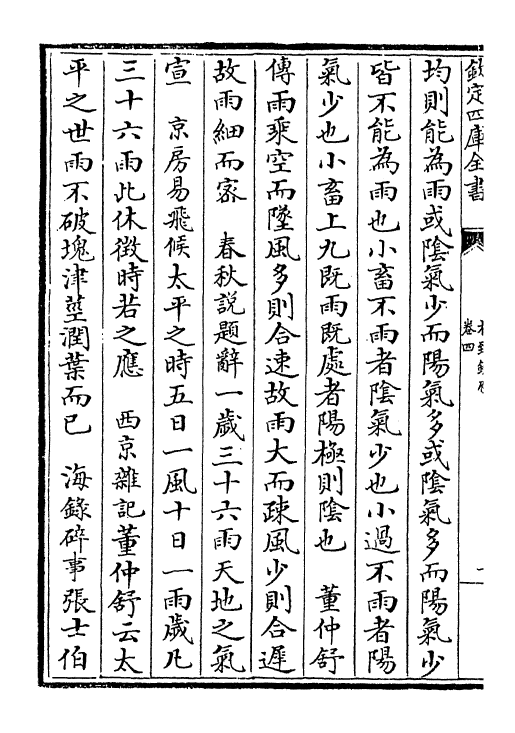 欽定四庫全書
卷四
均則能為雨或陰氣少而陽氣多或陰氣多而陽氣少
皆不能為雨也小畜不雨者陰氣少也小過不雨者陽
氣少也小畜上九既雨既處者陽極則陰也　董仲舒
傳雨乘空而墜風多則合速故雨大而疎風少則合遲
故雨細而宻　春秋説題辭一歲三十六雨天地之氣
宣　京房易飛候太平之時五日一風十日一雨歲凡
三十六雨此休徴時若之應　西京雜記董仲舒云太
平之世雨不破塊津莖潤葉而已　海錄碎事張士伯